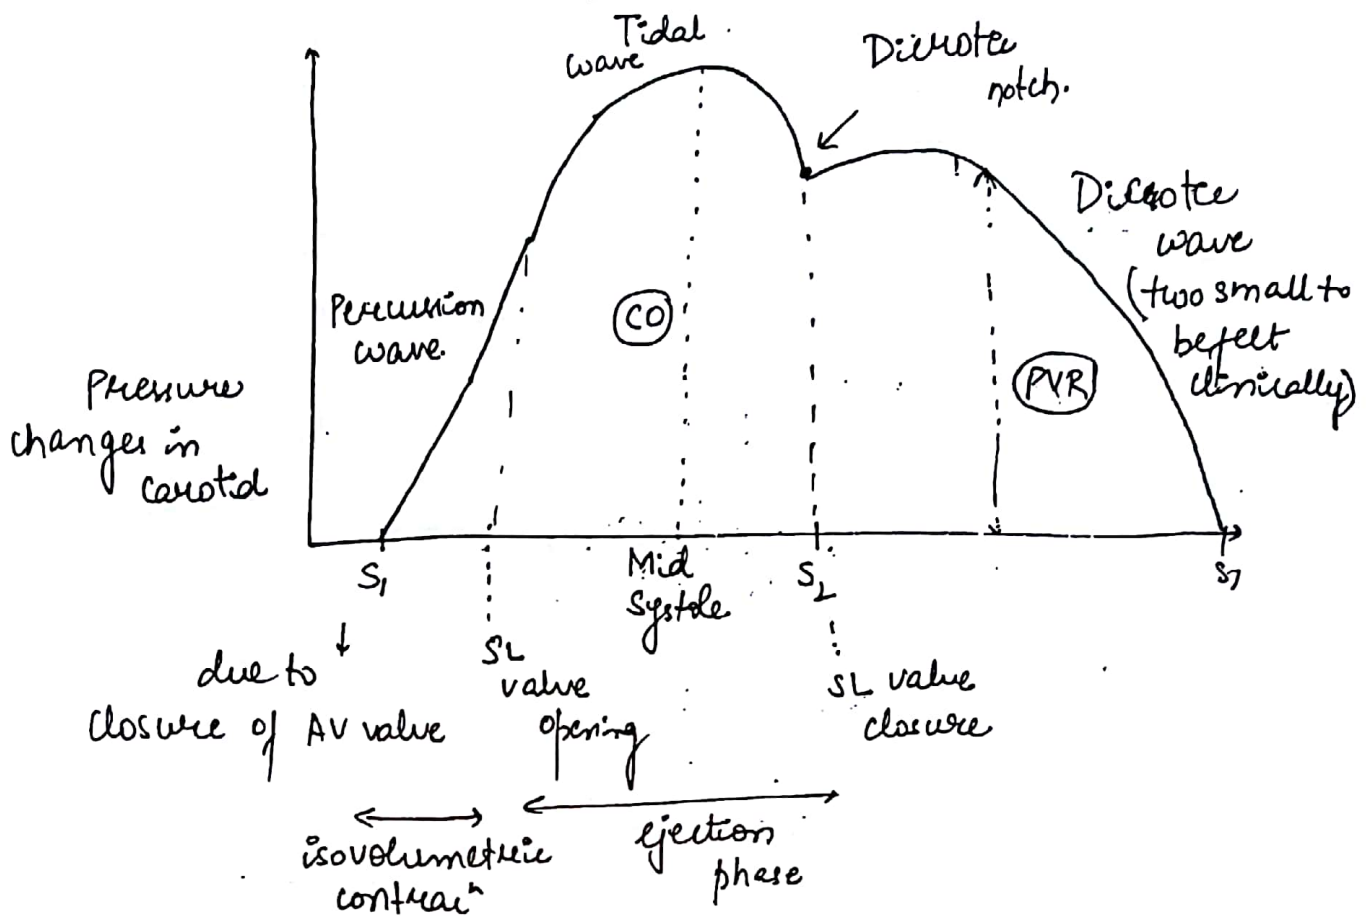 Tidal
wave
Dicrotic
notch.
Dicrotic
wave
(two small to
be felt
clinically)
Percussion
wave.
CO
PVR
Pressure
changes in
carotid
S₁
Mid
systole
S₂
S₁
due to
closure of AV valve
SL
valve
opening
SL valve
closure
isovolumetric
contracⁿ
ejection
phase